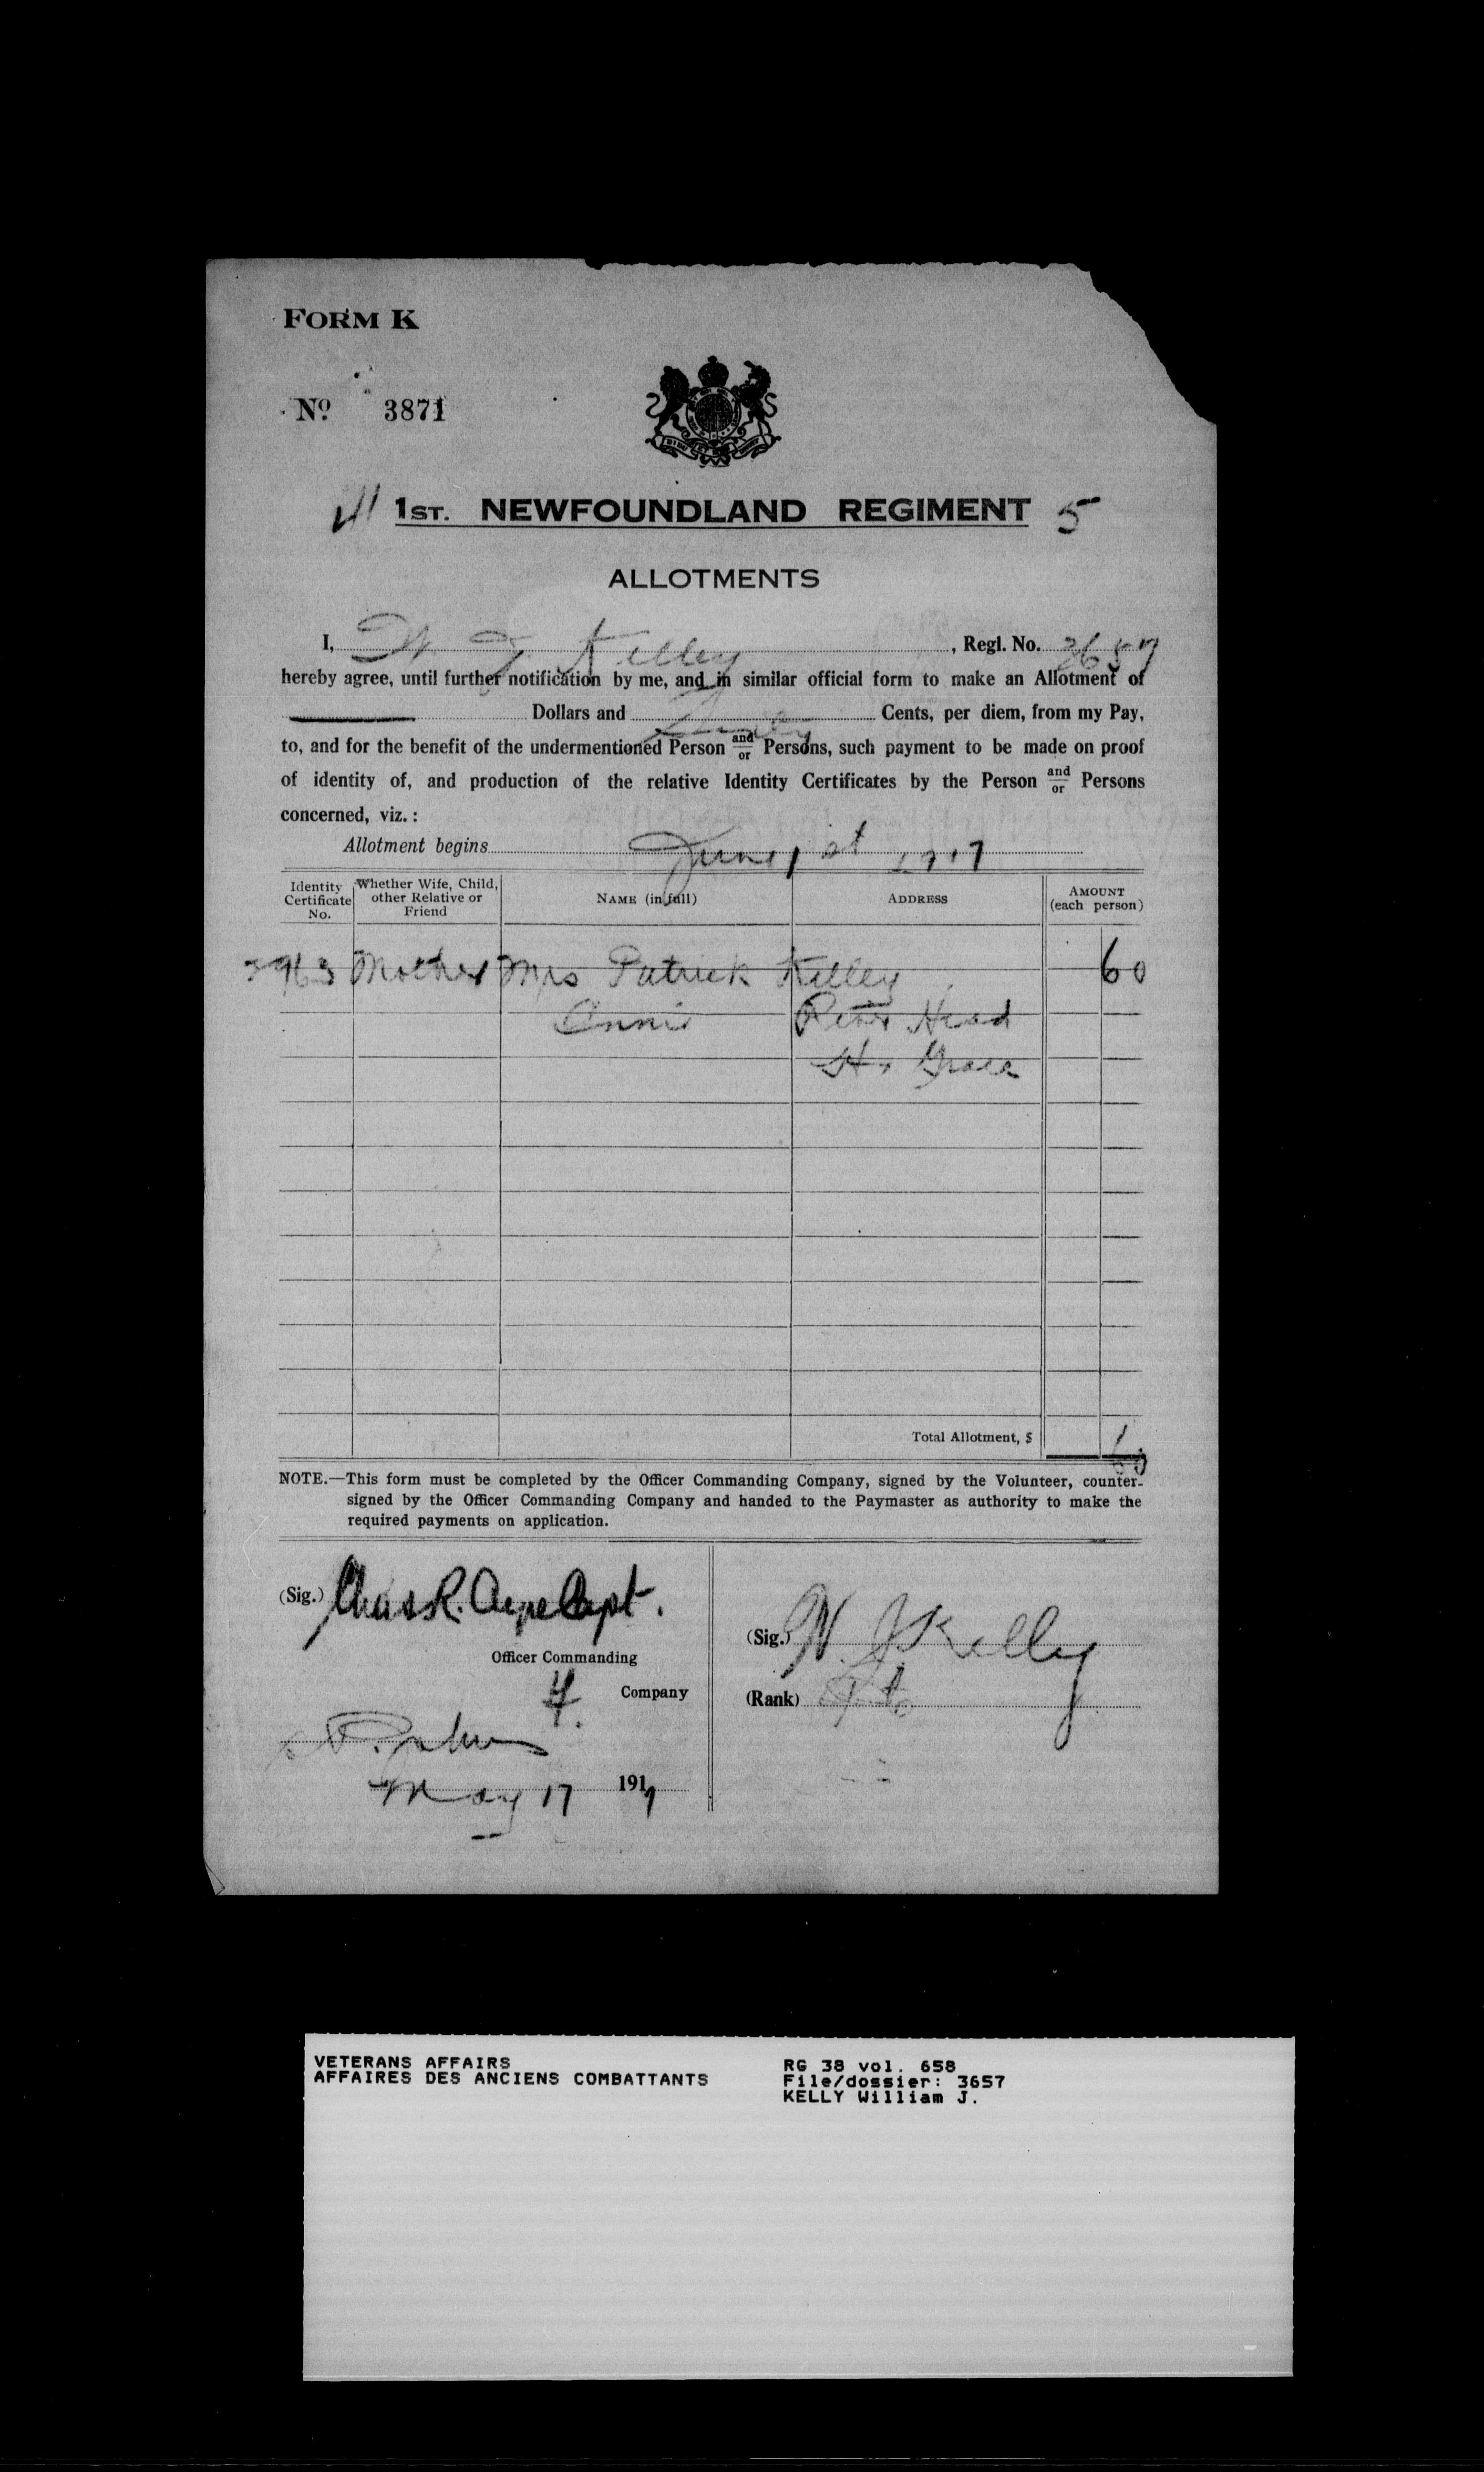 FORM K
No. 3871
1ST. NEWFOUNDLAND REGIMENT 5
ALLOTMENTS
I, W. J. Kelley, Regl. No. 3657
hereby agree, until further notification by me, and in similar official form to make an Allotment of
Dollars and Sixty Cents, per diem, from my Pay,
to, and for the benefit of the undermentioned Person and/or Persons, such payment to be made on proof
of identity of, and production of the relative Identity Certificates by the Person and/or Persons
concerned, viz.:
Allotment begins June 1st 1917
Identity Certificate No. Whether Wife, Child, other Relative or Friend NAME (in full) ADDRESS AMOUNT (each person)
3963 Mother Mrs Patrick Kelley 60
Annie River Head
Hr Grace
Total Allotment, $ 60
NOTE.—This form must be completed by the Officer Commanding Company, signed by the Volunteer, counter-
signed by the Officer Commanding Company and handed to the Paymaster as authority to make the
required payments on application.
(Sig.) Chas R. Ayre Capt.
Officer Commanding
Company
St. John's
May 17 1917
(Sig.) W. J Kelly
(Rank) Pte
VETERANS AFFAIRS
AFFAIRES DES ANCIENS COMBATTANTS
RG 38 vol. 658
File/dossier: 3657
KELLY William J.